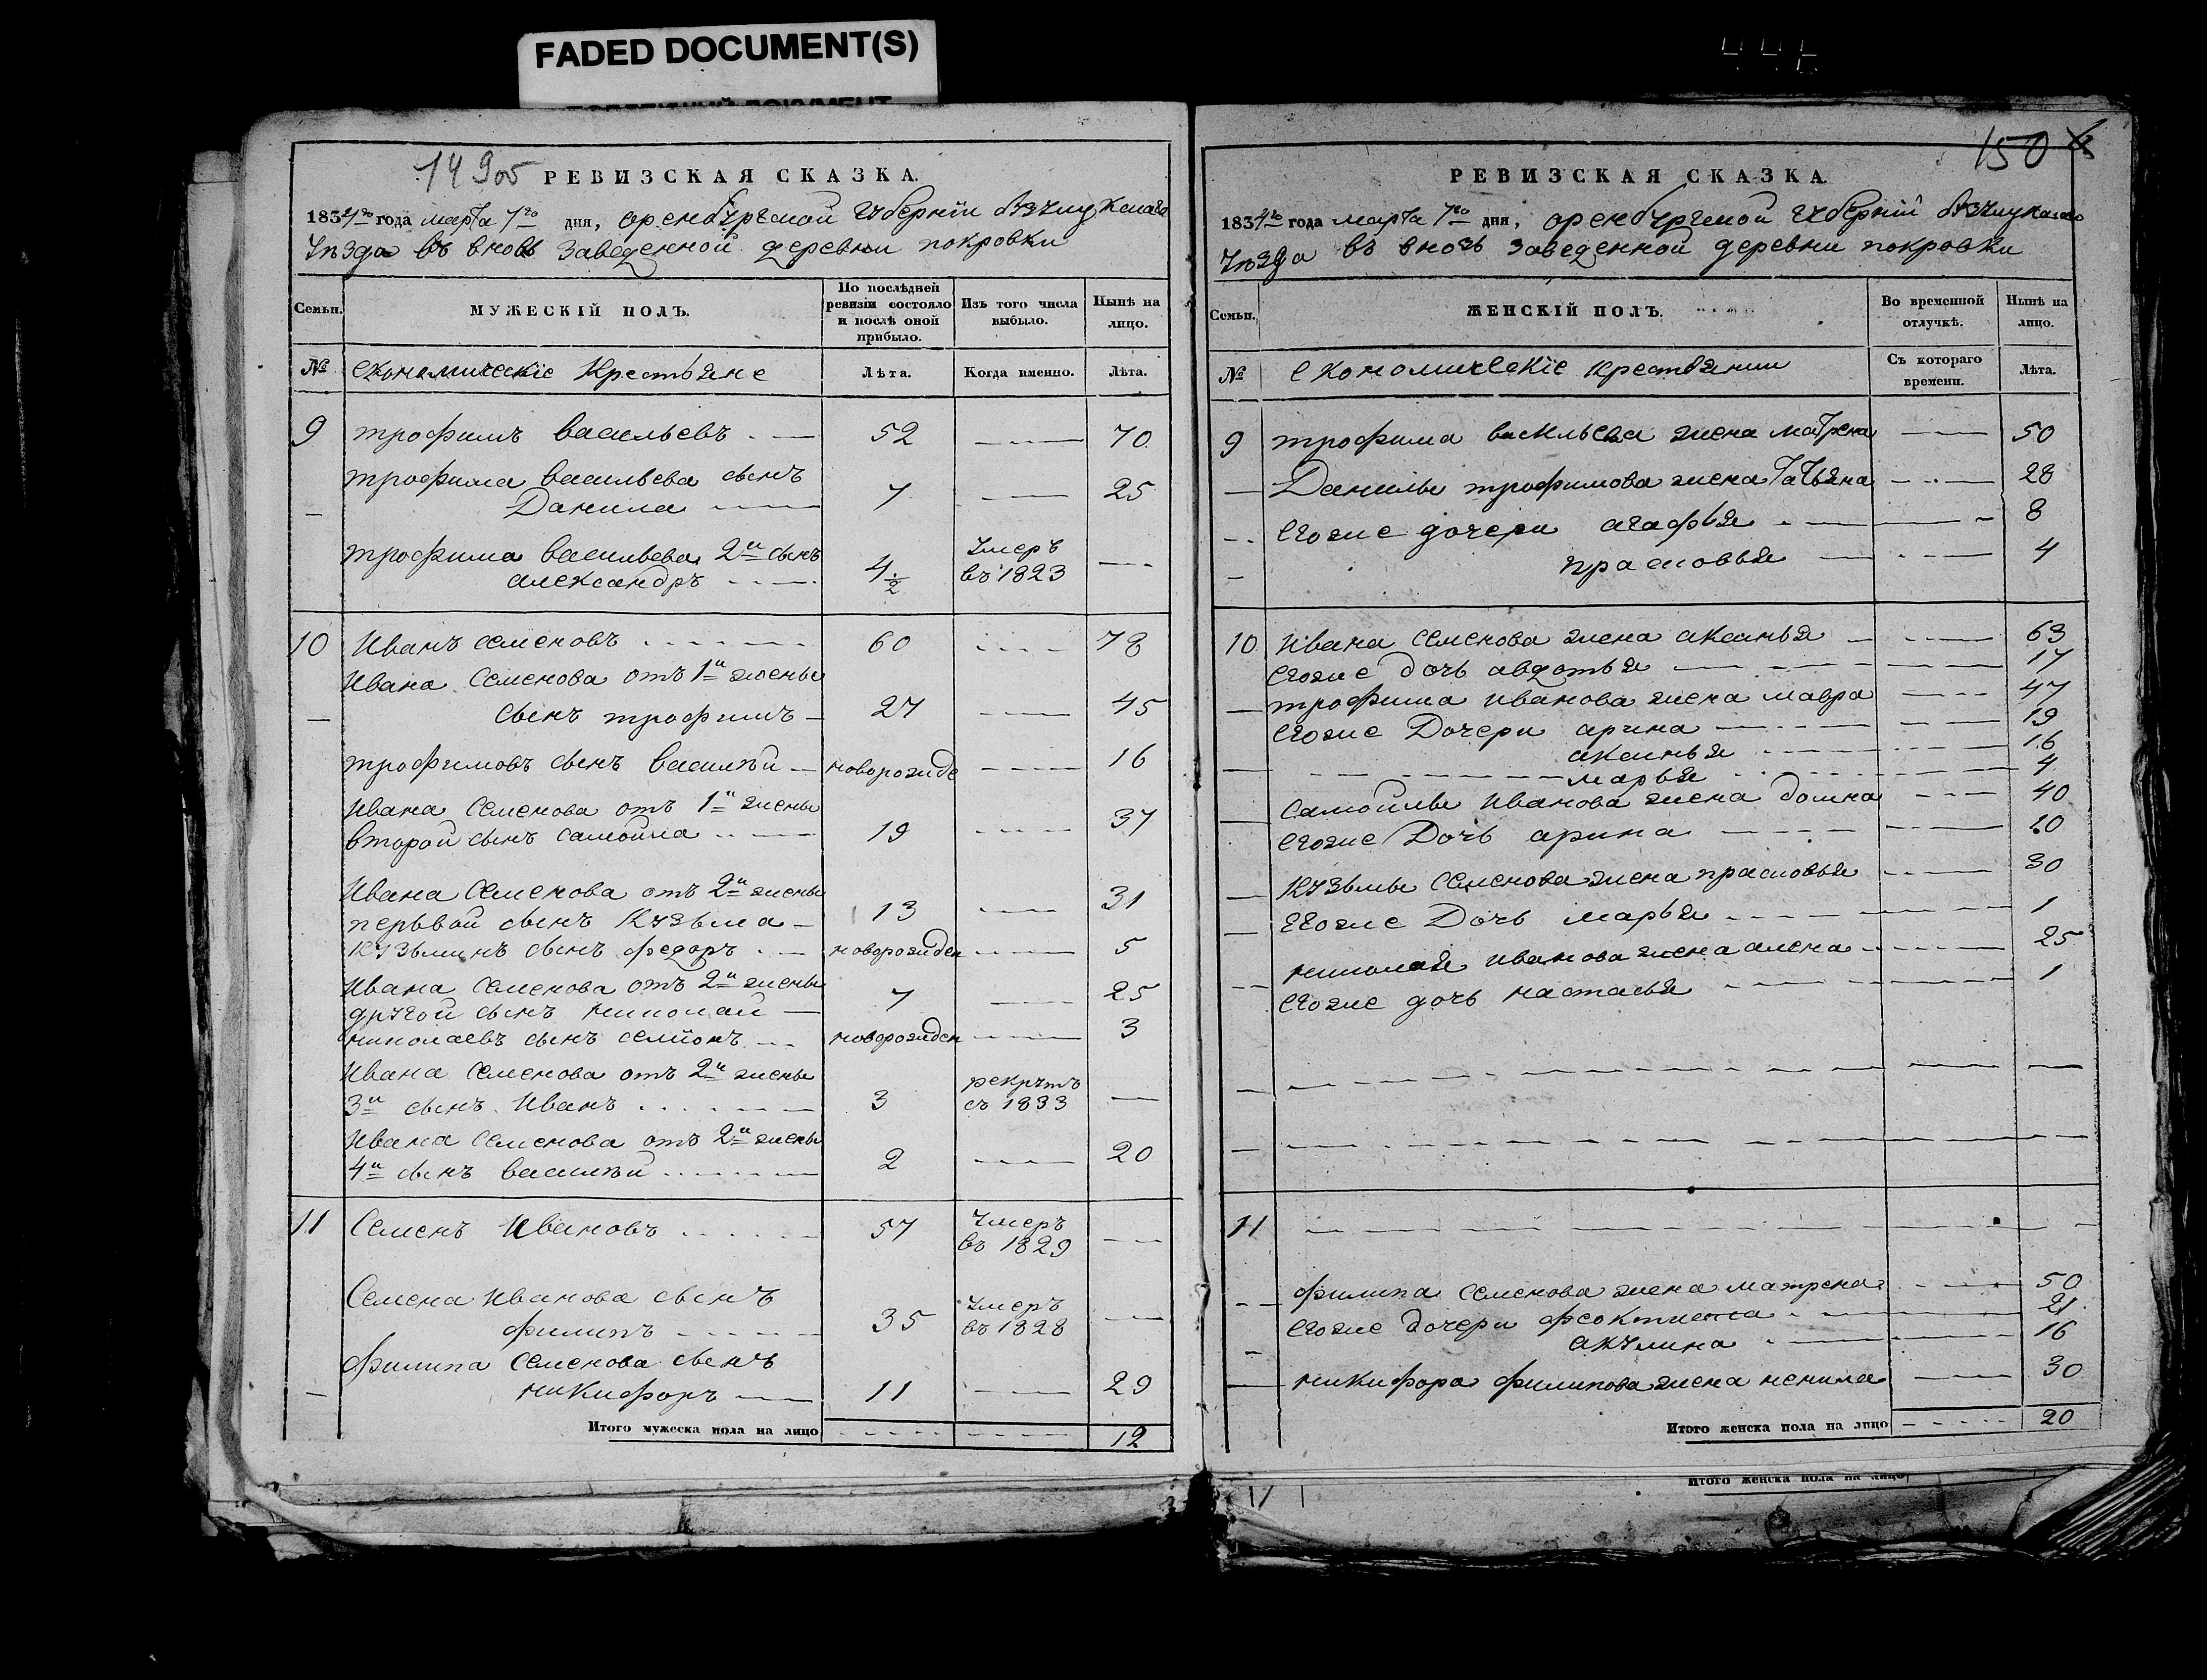 FADED DOCUMENT(S)
149об РЕВИЗСКАЯ СКАЗКА.
1834го года марта 7го дня, оренбургской губернїи бузулукскаго
уѣзда въ вновь заведенной деревни покровки
Семьи.
МУЖЕСКІЙ ПОЛЪ.
По послѣдней ревизіи состояло и послѣ оной прибыло.
Изъ того числа выбыло.
Нынѣ на лицо.
№ економическїе крестьяне Лѣта. Когда именно. Лѣта.
9 трофимъ васильевъ 52 70
трофима васильева сынъ
Данила 7 25
трофима васильева 2й сынъ
александръ 4 1/2 умеръ въ 1823
10 Иванъ семеновъ 60 78
Ивана Семенова отъ 1й жены
сынъ трофимъ 27 45
трофимовъ сынъ василѣй новорожде 16
Ивана Семенова отъ 1й жены
второй сынъ самойла 19 37
Ивана Семенова отъ 2й жены
первой сынъ кузьма 13 31
кузьминъ сынъ федоръ новорожден 5
Ивана Семенова отъ 2й жены
другой сынъ николай 7 25
николаевъ сынъ семионъ новорожден 3
Ивана Семенова отъ 2й жены
3й сынъ Иванъ 3 рекрутъ съ 1833
Ивана Семенова отъ 2й жены
4й сынъ василѣй 2 20
11 Семенъ Ивановъ 57 умеръ въ 1829
Семена Иванова сынъ
филипъ 35 умеръ въ 1828
филипа Семенова сынъ
никифоръ 11 29
Итого мужеска пола на лицо 12
150
РЕВИЗСКАЯ СКАЗКА.
1834го года марта 7го дня, оренбургской губернїй бузулукскаго
уѣзда въ вновь заведенной деревни покровки
Семьи.
ЖЕНСКІЙ ПОЛЪ.
Во временной отлучкѣ.
Нынѣ на лицо.
№ економическїе крестьянки Съ котораго времени. Лѣта.
9 трофима васильева жена матрена 50
Данилы трофимова жена татьяна 28
егоже дочери агафья 8
прасковья 4
10 Ивана семенова жена аксинья 63
егоже дочь авдотья 17
трофима иванова жена мавра 47
егоже Дочери арина 19
аксинья 16
марья 4
самойлы иванова жена домна 40
егоже Дочь арина 10
кузьмы Семенова жена прасковья 30
егоже Дочь марья 1
николая иванова жена алена 25
егоже дочь настасья 1
11
филипа семенова жена матрена 50
егоже дочери феоктиста 21
акулина 16
никифора филипова жена ненила 30
Итого женска пола на лицо 20
Итого женска пола на лицо